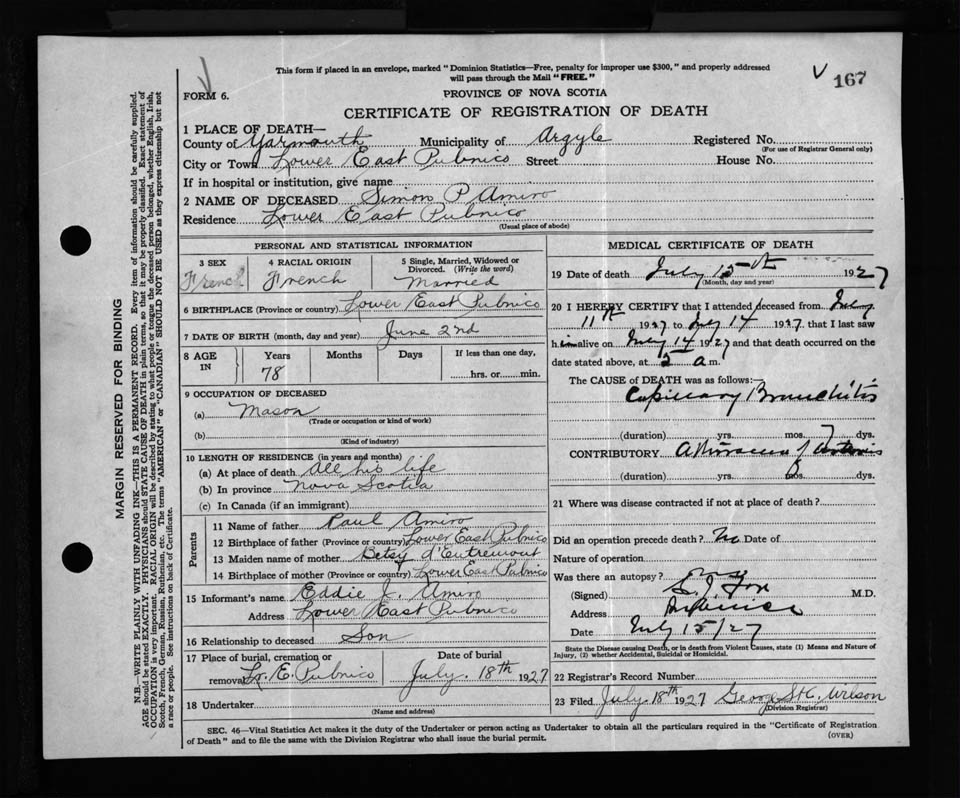 This form if placed in an envelope, marked "Dominion Statistics—Free, penalty for improper use $300," and properly addressed
will pass through the Mail "FREE."
167
FORM 6.
PROVINCE OF NOVA SCOTIA
CERTIFICATE OF REGISTRATION OF DEATH
1 PLACE OF DEATH—
County of Yarmouth Municipality of Argyle Registered No.
(For use of Registrar General only)
City or Town Lower East Pubnico Street House No.
If in hospital or institution, give name
2 NAME OF DECEASED Simon P Amiro
Residence Lower East Pubnico
(Usual place of abode)
PERSONAL AND STATISTICAL INFORMATION
3 SEX 4 RACIAL ORIGIN 5 Single, Married, Widowed or
Divorced. (Write the word)
French French Married
6 BIRTHPLACE (Province or country) Lower East Pubnico
7 DATE OF BIRTH (month, day and year) June 2nd
8 AGE IN Years Months Days If less than one day,
78 hrs. or min.
9 OCCUPATION OF DECEASED
(a) Mason
(Trade or occupation or kind of work)
(b)
(Kind of industry)
10 LENGTH OF RESIDENCE (in years and months)
(a) At place of death All his life
(b) In province Nova Scotia
(c) In Canada (if an immigrant)
Parents
11 Name of father Paul Amiro
12 Birthplace of father (Province or country) Lower East Pubnico
13 Maiden name of mother Betsy d'Entremont
14 Birthplace of mother (Province or country) Lower East Pubnico
15 Informant's name Eddie J. Amiro
Address Lower East Pubnico
16 Relationship to deceased Son
17 Place of burial, cremation or Date of burial
removal Lr. E. Pubnico July. 18th 1927
18 Undertaker
(Name and address)
MEDICAL CERTIFICATE OF DEATH
19 Date of death July 15th 1927
(Month, day and year)
20 I HEREBY CERTIFY that I attended deceased from July
11th 1927 to July 14 1927. that I last saw
him alive on July 14 1927 and that death occurred on the
date stated above, at 5 a m.
The CAUSE of DEATH was as follows:—
Capillary Bronchitis
(duration) yrs. mos. 7 dys.
CONTRIBUTORY of
(duration) yrs. mos. dys.
21 Where was disease contracted if not at place of death?
Did an operation precede death? No Date of
Nature of operation
Was there an autopsy? no
(Signed) S. J. Fox M.D.
Address Pubnico
Date July 15/27
State the Disease causing Death, or in death from Violent Causes, state (1) Means and Nature of
Injury, (2) whether Accidental, Suicidal or Homicidal.
22 Registrar's Record Number
23 Filed July 18th 1927 George St C. Wilson
(Division Registrar)
SEC. 46—Vital Statistics Act makes it the duty of the Undertaker or person acting as Undertaker to obtain all the particulars required in the "Certificate of Registration
of Death" and to file the same with the Division Registrar who shall issue the burial permit.
(OVER)
MARGIN RESERVED FOR BINDING
N.B.—WRITE PLAINLY WITH UNFADING INK—THIS IS A PERMANENT RECORD. Every item of information should be carefully supplied.
AGE should be stated EXACTLY. PHYSICIANS should STATE CAUSE OF DEATH in plain terms, so that it may be properly classified. Exact statement of
OCCUPATION is very important. RACIAL ORIGIN will be described by stating to what people or tongue the deceased person belonged, whether English, Irish,
Scotch, French, German, Russian, Ruthenian, etc. The terms "AMERICAN" or "CANADIAN" SHOULD NOT BE USED as they express citizenship but not
a race or people. See instructions on back of Certificate.